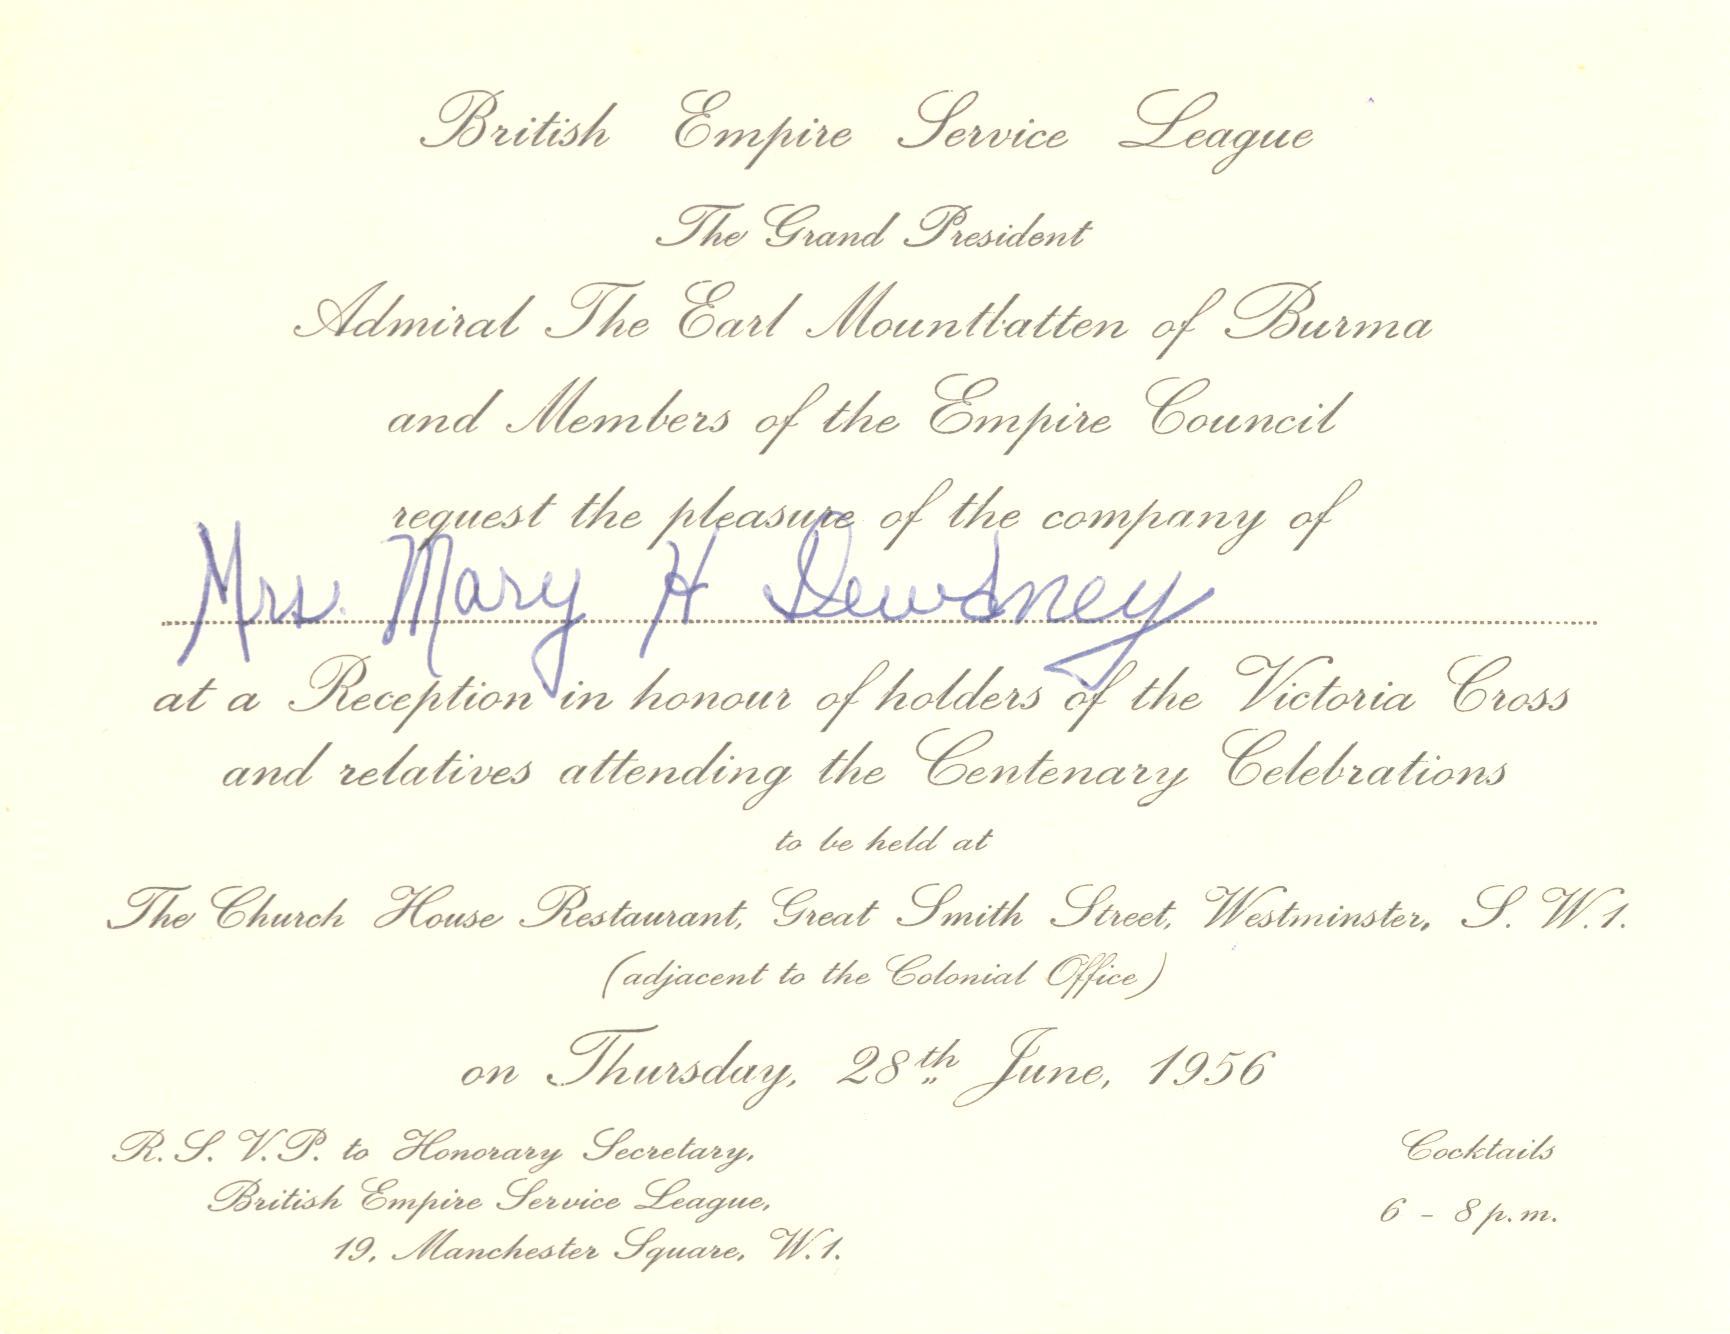 British Empire Service League
The Grand President
Admiral The Earl Mountbatten of Burma
and Members of the Empire Council
request the pleasure of the company of
Mrs. Mary H Dewdney
at a Reception in honour of holders of the Victoria Cross
and relatives attending the Centenary Celebrations
to be held at
The Church House Restaurant, Great Smith Street, Westminster, S. W.1.
(adjacent to the Colonial Office)
on Thursday, 28th June, 1956
R. S. V. P. to Honorary Secretary,
British Empire Service League,
19, Manchester Square, W.1.
Cocktails
6 - 8 p.m.